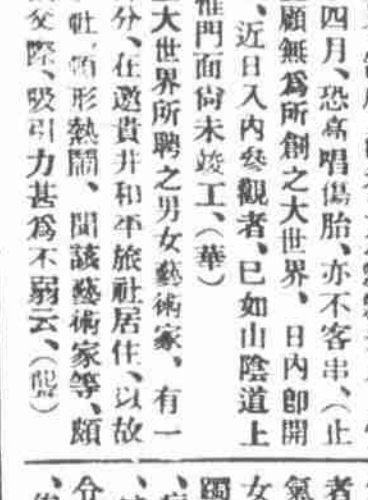 四月、恐高唱傷胎、亦不客串、（止
顧無爲所創之大世界、日內卽開
、近日入內參觀者、已如山陰道上
惟門面尙未竣工、（華）
大世界所聘之男女藝術家、有一
分、在邀貴井和平旅社居住、以故
社、頓形熱鬧、聞該藝術家等、頗
交際、吸引力甚爲不弱云、（龍）
者
氣
女
獨
、
、
介
、